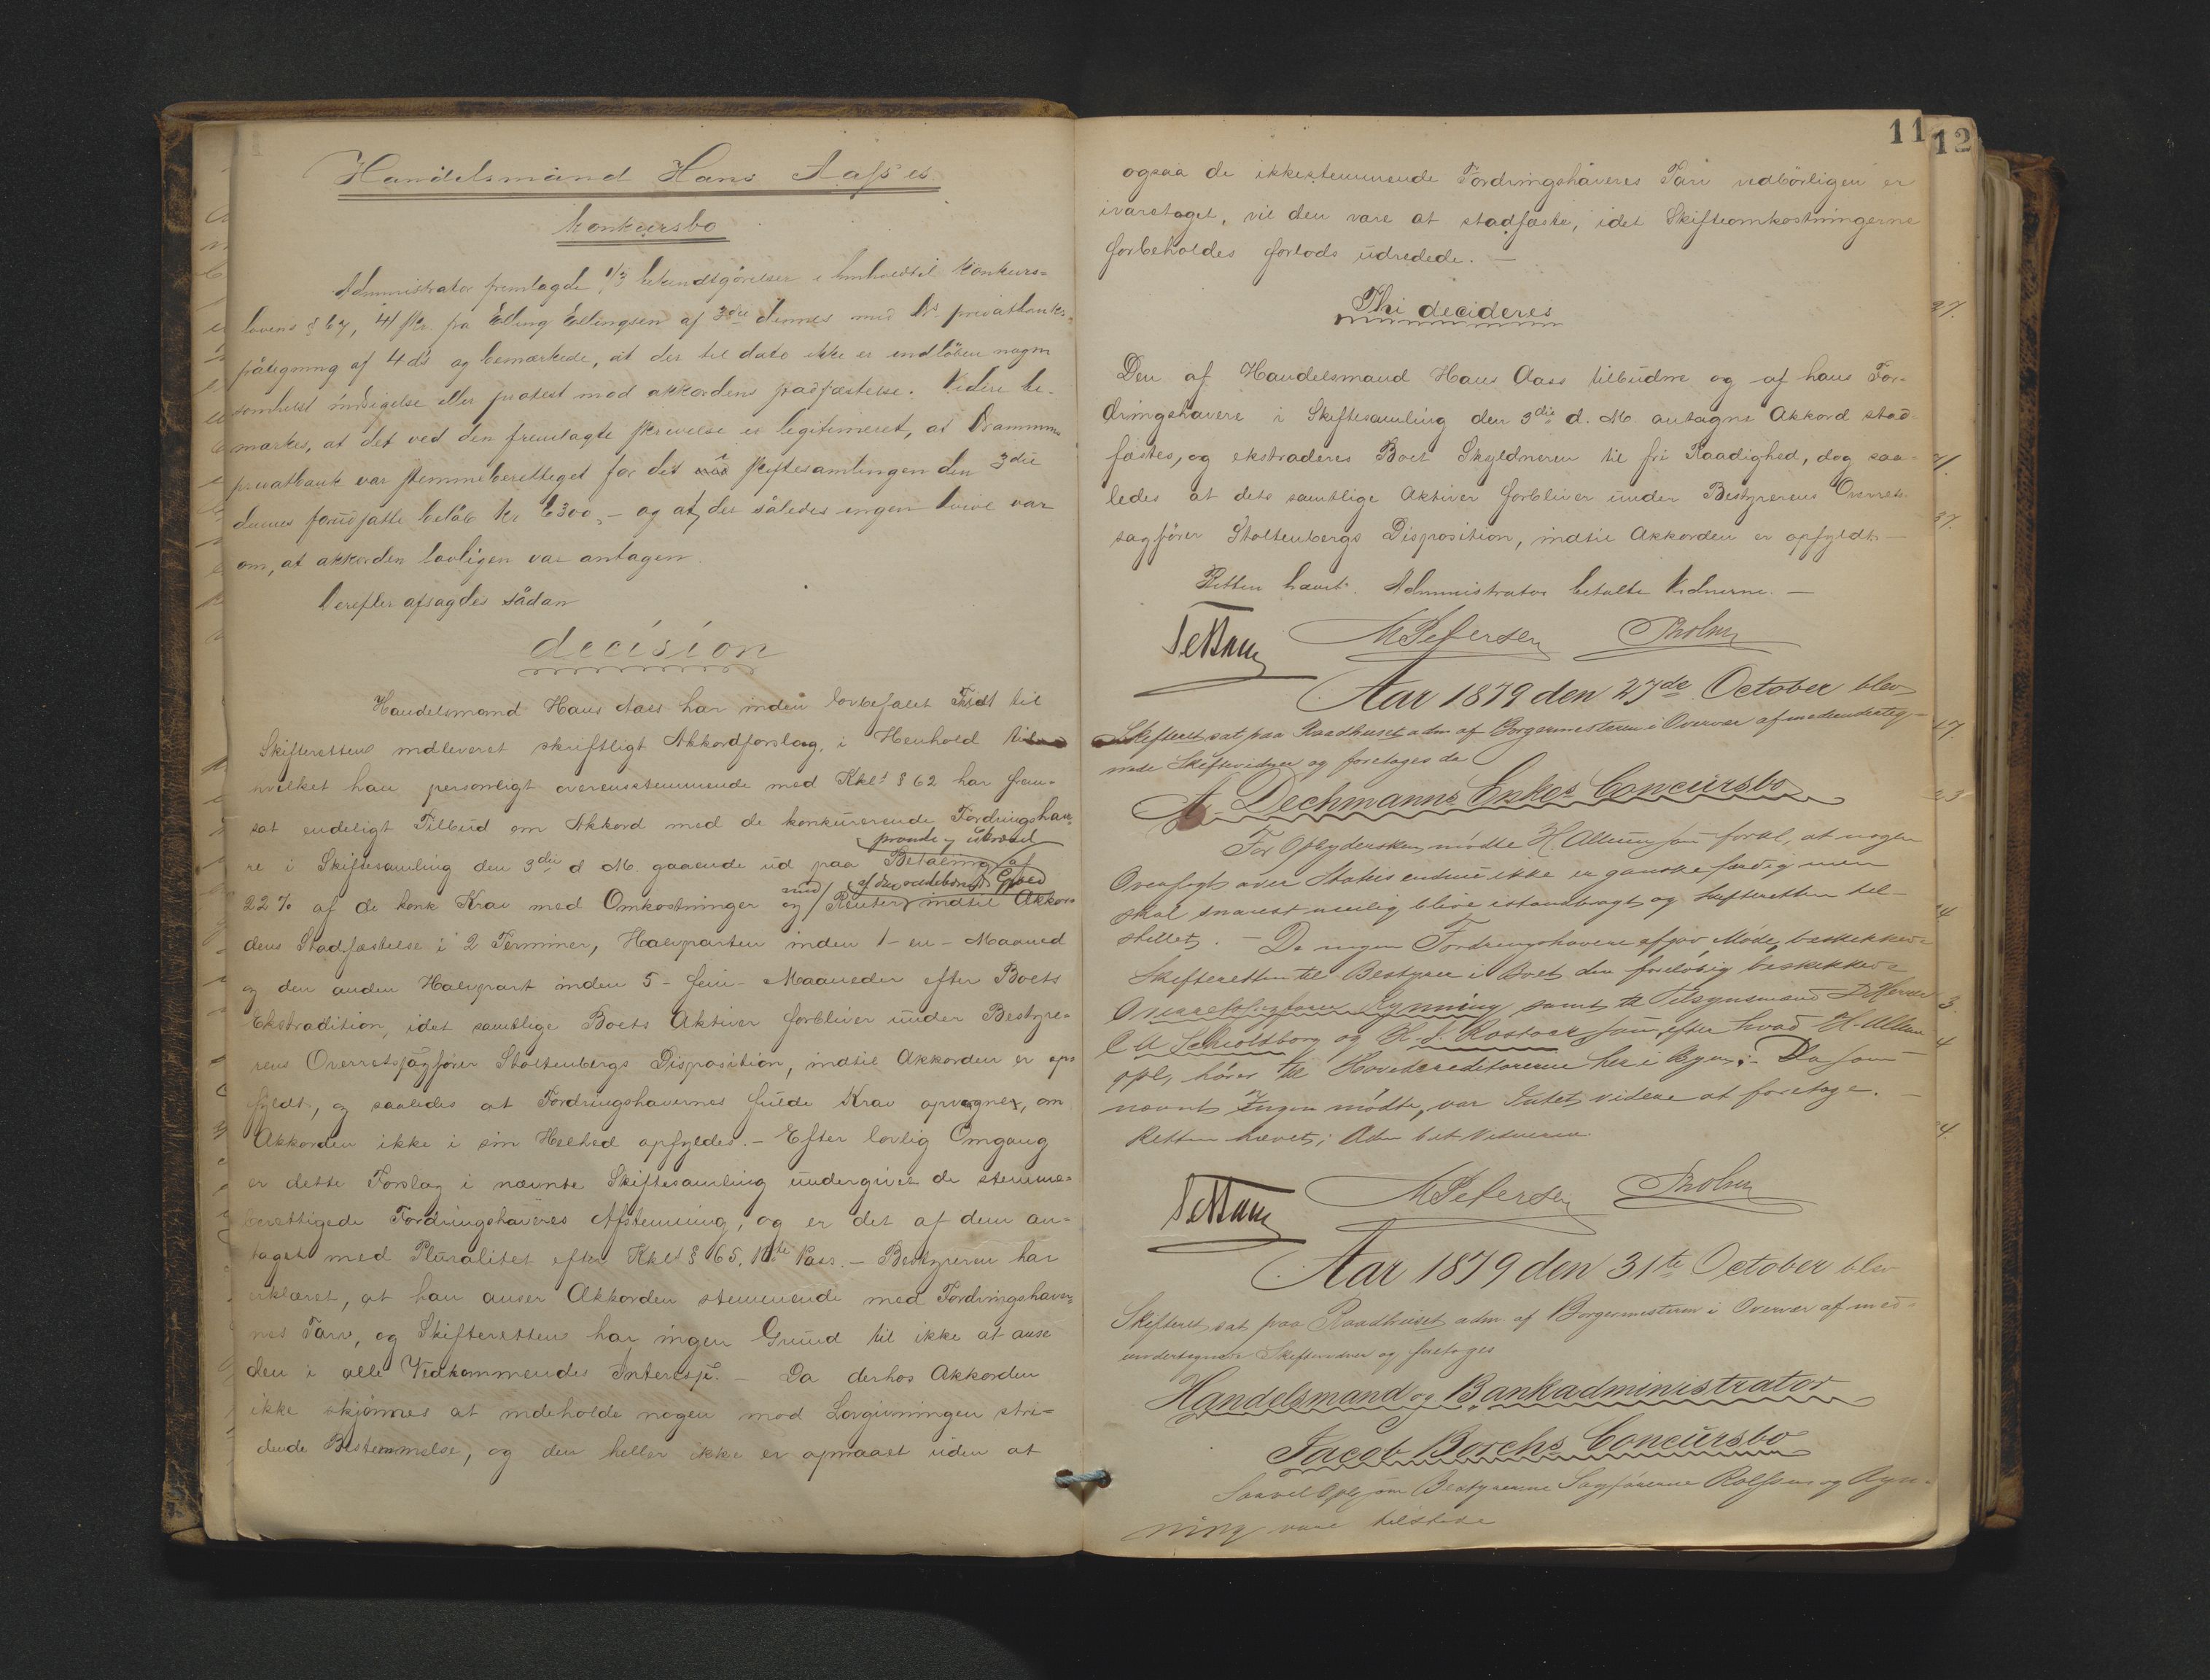 Handelsmand Hans Aass'es
konkursbo
Administrator fremlagde 1/3 bekendtgörelser i henhold til konkurs-
lovens § 67, 4/ skr. fra Elling Ellingsen af 3die dennes med Dr. privatbanks
påtegning af 4 ds og bemærkede, at der til dato ikke er indlöben nogen
somhelst indsigelse eller protest mod akkordens stadfæstelse. Videre be-
mærkes, at det ved den fremlagte skrivelse er legitimeret, at Drammens
privatbank var stemmeberettiget for det i skiftesamlingen den 3die
dennes forudsatte belöb Kr 6300,- og at der således ingen tvivl var
om, at akkorden lovligen var antagen.
Derefter afsagdes sådan
decision
Handelsmand Hans Aass har inden lovbefalet Tid til
Skifteretten indleveret skriftligt Akkordforslag, i Henhold til
hvilket han personligt overensstemmende med Kkl's § 62 har frem-
sat endeligt Tilbud om Akkord med de konkurrerende Fordringshave-
re i Skiftesamling den 3die d M. gaaende ud paa Betaling af
22% af de konk Krav med Omkostninger og Renter indtil Akkor-
dens Stadfæstelse i 2 Terminer, Halvparten inden 1 - en - Maaned
og den anden Halvpart inden 5 - fem - Maaneder efter Boets
Ekstradition, idet samtlige Boets Aktiver forbliver under Bestyre-
rens Overretssagförer Stoltenbergs Disposition, indtil Akkorden er op-
fyldt, og saaledes at Fordringshavernes fulde Krav opvaagner, om
Akkorden ikke i sin Helhed opfyldes. - Efter lovlig Omgang
er dette Forslag i nævnte Skiftesamling undergivet de stemme-
berettigede Fordringshaveres Afstemning, og er det af dem an-
taget med Pluralitet efter Kkl's § 65, 1ste Pass. - Bestyreren har
erklæret, at han anser Akkorden stemmende med Fordringshaver-
nes Tarv, og Skifteretten har ingen Grund til ikke at anse
den i alle Vedkommendes Interesse. - Da derhos Akkorden
ikke skjönnes at indeholde nogen mod Lovgivningen stri-
dende Bestemmelse, og den heller ikke er opnaaet uden at
11
12
ogsaa de ikkestemmende Fordringshaveres Tarv vedbörligen er
ivaretaget, vil den være at stadfæste, idet Skifteomkostningerne
forbeholdes forlods udredede. -
Thi decideres
Den af Handelsmand Hans Aass tilbudne og af hans For-
dringshavere i Skiftesamling den 3die d. M antagne Akkord stad-
fæstes, og ekstraderes Boet Skyldneren til fri Raadighed, dog saa-
ledes at dets samtlige Aktiver forbliver under Bestyrerens Overrets-
sagförer Stoltenbergs Disposition, indtil Akkorden er opfyldt. -
Retten hævet. Administrator betalte Vidnerne. -
M Petersen
Aar 1879 den 27de October blev
Skifteret sat paa Raadhuset adm af Borgermesteren i Overvær af medunderteg-
nede Skiftevidner og foretoges da
A Dechmanns Enkes Concursbo
For Opbydersken mödte H. Allum som forkl, at nogen
Oversigt over Status endnu ikke er ganske færdig men
skal snarest mulig blive istandbragt og Skifteretten til-
stillet. - Da ingen Fordringshavere afgav Möde, beskikkede
Skifteretten til Bestyrer i Boet den foreløbig beskikkede
Overretssagförer Rynning samt til Tilsynsmænd D'Herrer
og som efter hvad H. Allum
opl, hörer til Hovedcreditorerne her i Byen; - Da som
nævnt Ingen mödte, var Intet videre at foretage. -
Retten hævet; Adm bet Vidnerne.
M Petersen
Aar 1879 den 31te October blev
Skifteret sat paa Raadhuset adm. af Borgermesteren i Overvær af med-
undertegnede Skiftevidner og foretoges
Handelsmand og Bankadministrator
Jacob Borchs Concursbo
Saavel Opb som Bestyrerne Sagförerne Rolfsen og Ryn-
ning vare tilstede